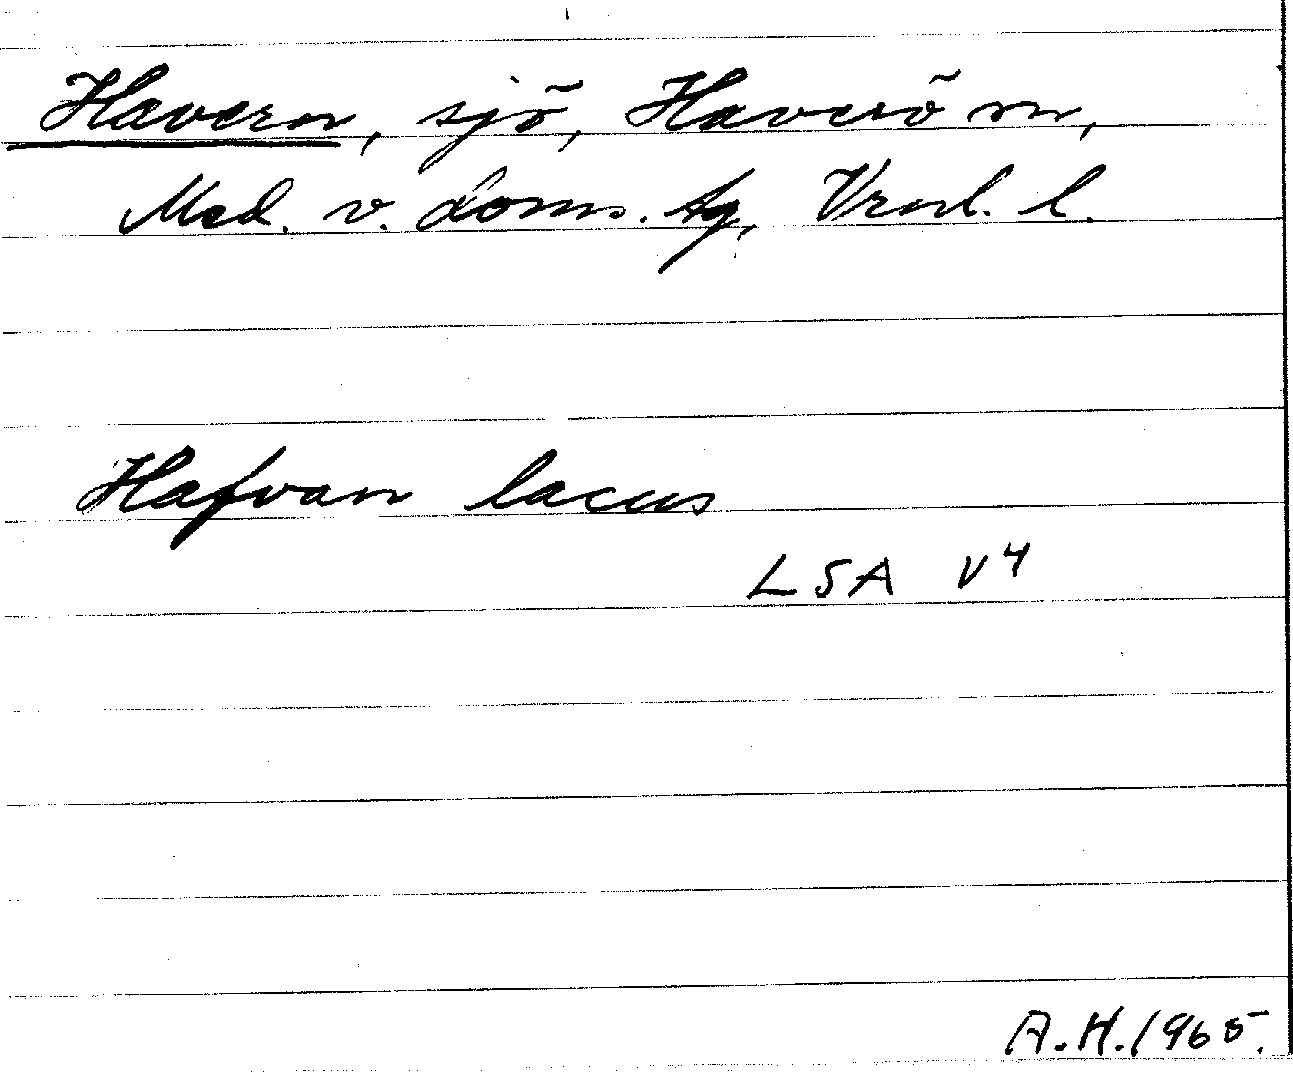 Havern, sjö, Haverö sn,
Med. v. doms. tg, Vrnl. l.
Hafvan lacus
LSA V4
A.H. 1965.